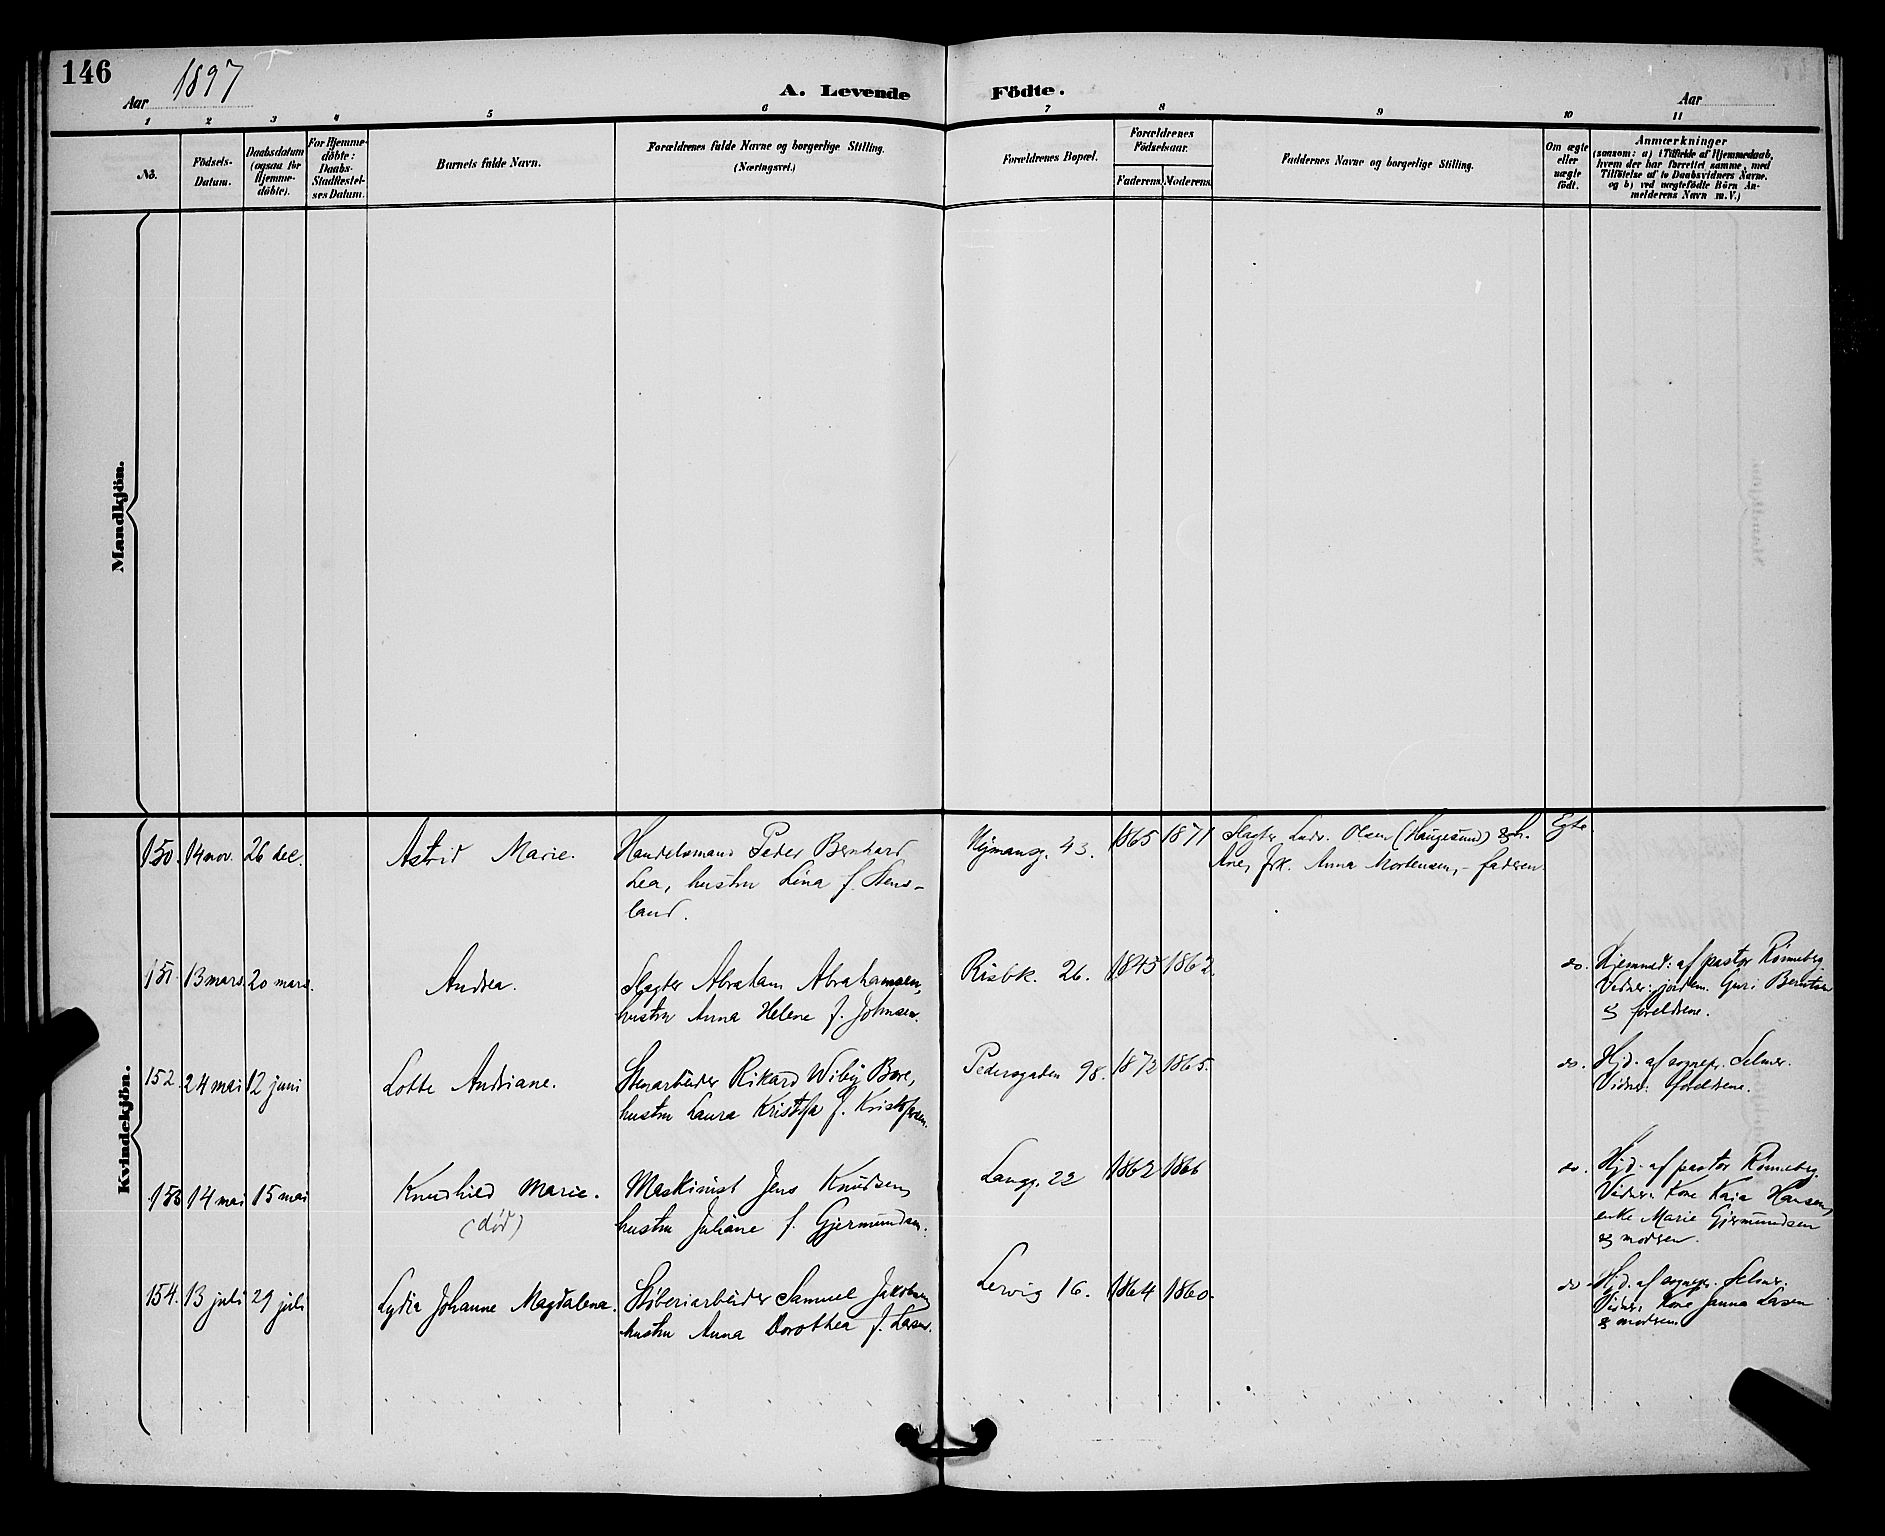 146
Aar 1897
A. Levende Födte.
Aar
1 2 3 4 5 6 7 8 9 10 11
No.
Födsels-
Datum.
Daabsdatum
(ogsaa for
Hjemme-
döbte).
For Hjemme-
döbte:
Daabs-
Stadfæstel-
ses Datum.
Barnets fulde Navn.
Forældrenes fulde Navne og borgerlige Stilling.
(Næringsvei.)
Forældrenes Bopæl.
Forældrenes
Födselsaar.
Faderens. Moderens.
Faddernes Navne og borgerlige Stilling.
Om ægte
eller
uægte
födt.
Anmærkninger
(saasom: a) i Tilfælde af Hjemmedaab,
hvem der har forrettet samme, med
Tilföielse af to Daabsvidners Navne,
og b) ved uægtefödte Börn An-
melderens Navn m.V.)
Mandkjön.
Kvindekjön.
150. 14 nov. 26 dec. Astrid Marie. Handelsmand Peder Bernhard
Lea, hustru Lina f. Stens-
land.
Nymansg. 43. 1865 1871 Slagter Ludv. Olsen (Haugesund) & h.
Ane, frk. Anna Mortensen, - faderen.
Egte
151. 13 mars 20 mars. Andrea. Slagter Abraham Abrahamsen,
hustru Anna Helene f. Johnsen.
Risbk. 26. 1845 1862. do. Hjemmed: af pastor Rönneberg
Vidner: jordem. Guri Berntsen
& foreldrene.
152. 24 mai 12 juni Lotte Andriane. Stenarbeider Rikard Wiby Bore,
hustru Laura Kristofa f. Kristofersen.
Pedersgaden 98. 1872 1865. do. Hjd. af sognepr. Selmer.
Vidner: foreldrene.
153 14 mai 15 mai Knudhild Marie.
(död)
Maskinist Jens Knudsen,
hustru Juliane f. Gjermundsen.
Langg. 22 1862 1866 do. Hjd. af pastor Rönneberg
Vidner: Kone Kaia Hansen,
enke Marie Gjermundsen
& modren.
154. 13 juli 29 juli Lydia Johanne Magdalena. Stöberiarbeider Samuel Jakobsen,
hustru Anna Dorothea f. Larsen.
Lervig 16. 1864 1860. do. Hjd. af sognepr. Selmer.
Vidner: Kone Janna Larsen
& modren.